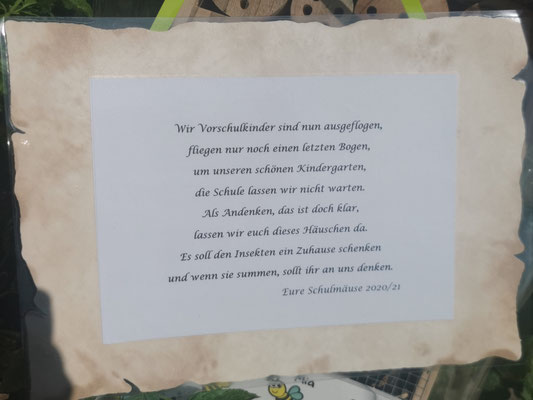 Wir Vorschulkinder sind nun ausgeflogen,
fliegen nur noch einen letzten Bogen,
um unseren schönen Kindergarten,
die Schule lassen wir nicht warten.
Als Andenken, das ist doch klar,
lassen wir euch dieses Häuschen da.
Es soll den Insekten ein Zuhause schenken
und wenn sie summen, sollt ihr an uns denken.
Eure Schulmäuse 2020/21